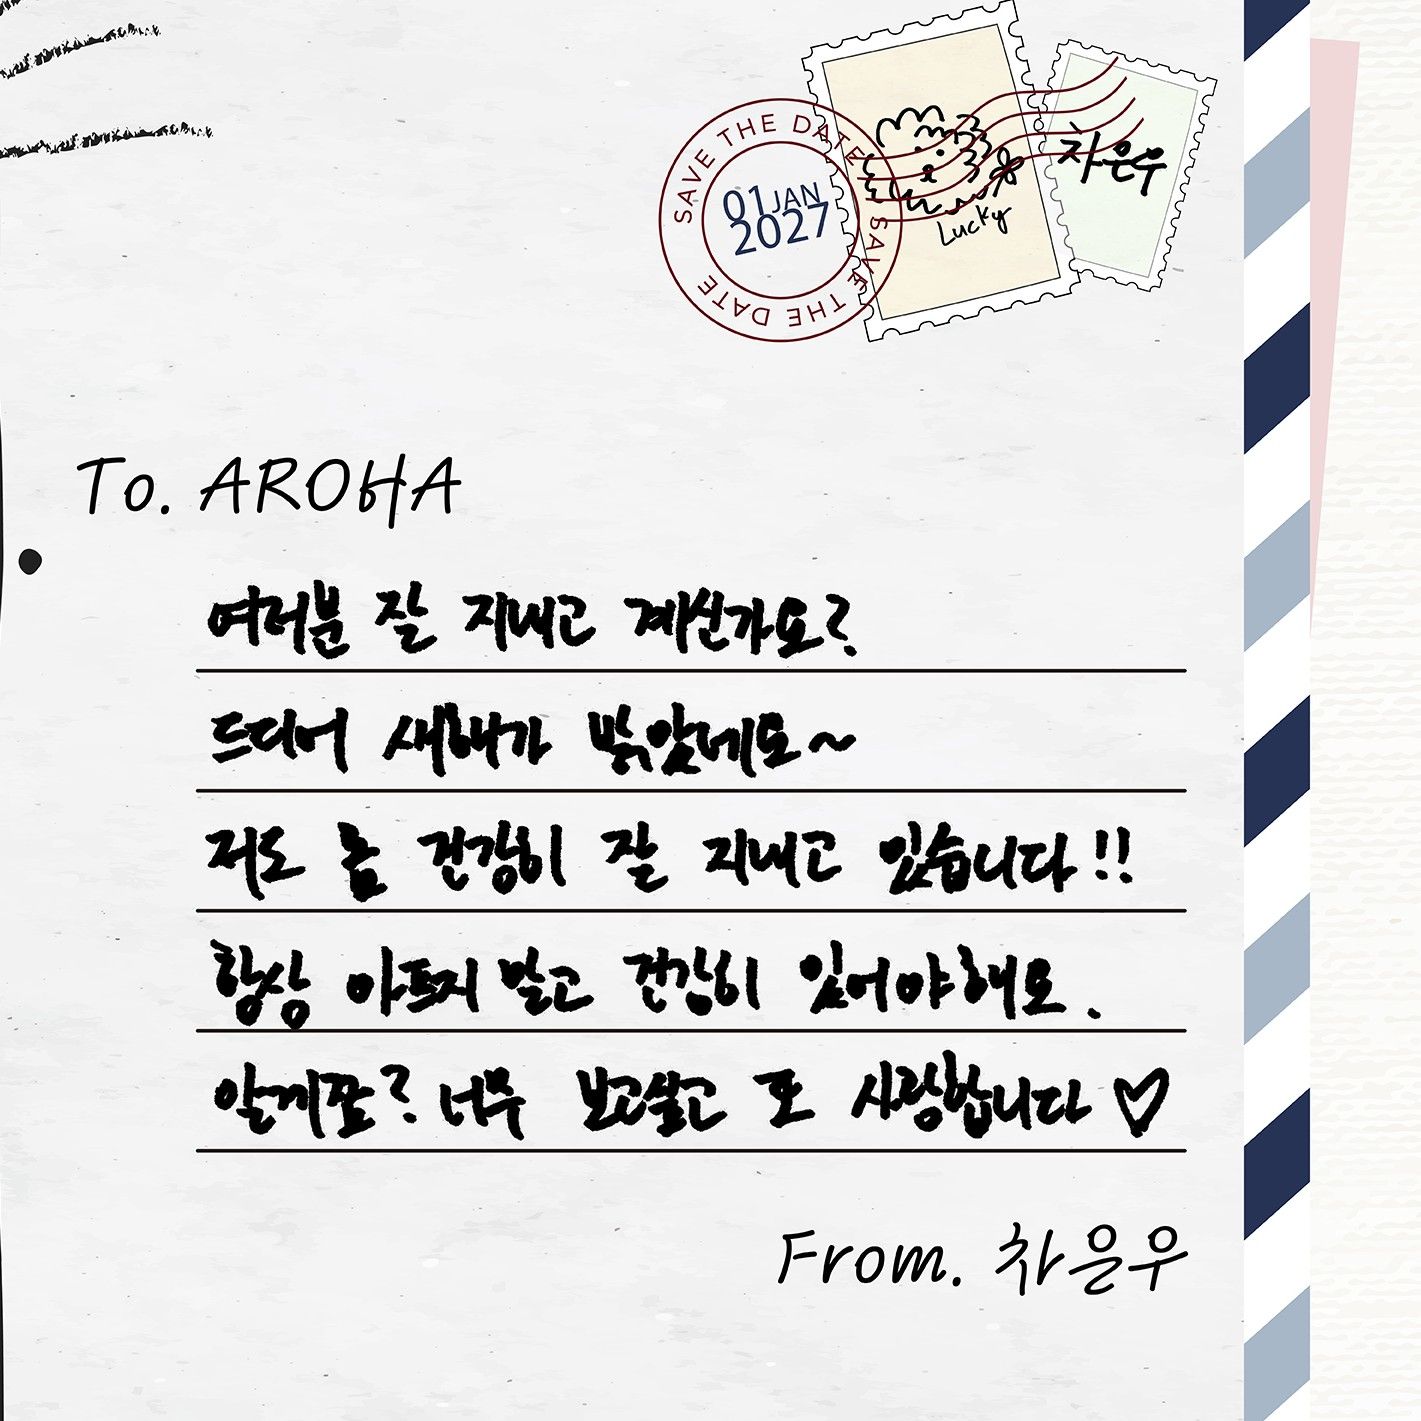 SAVE THE DATE SAVE THE DATE
01 JAN
2027
Lucky
차은우
To. AROHA
여러분 잘 지내고 계신가요?
드디어 새해가 밝았네요~
저도 좀 건강히 잘 지내고 있습니다!!
항상 아프지 말고 건강히 있어야해요.
알게쬬? 너무 보고싶고 또 사랑합니다♡
From. 차은우